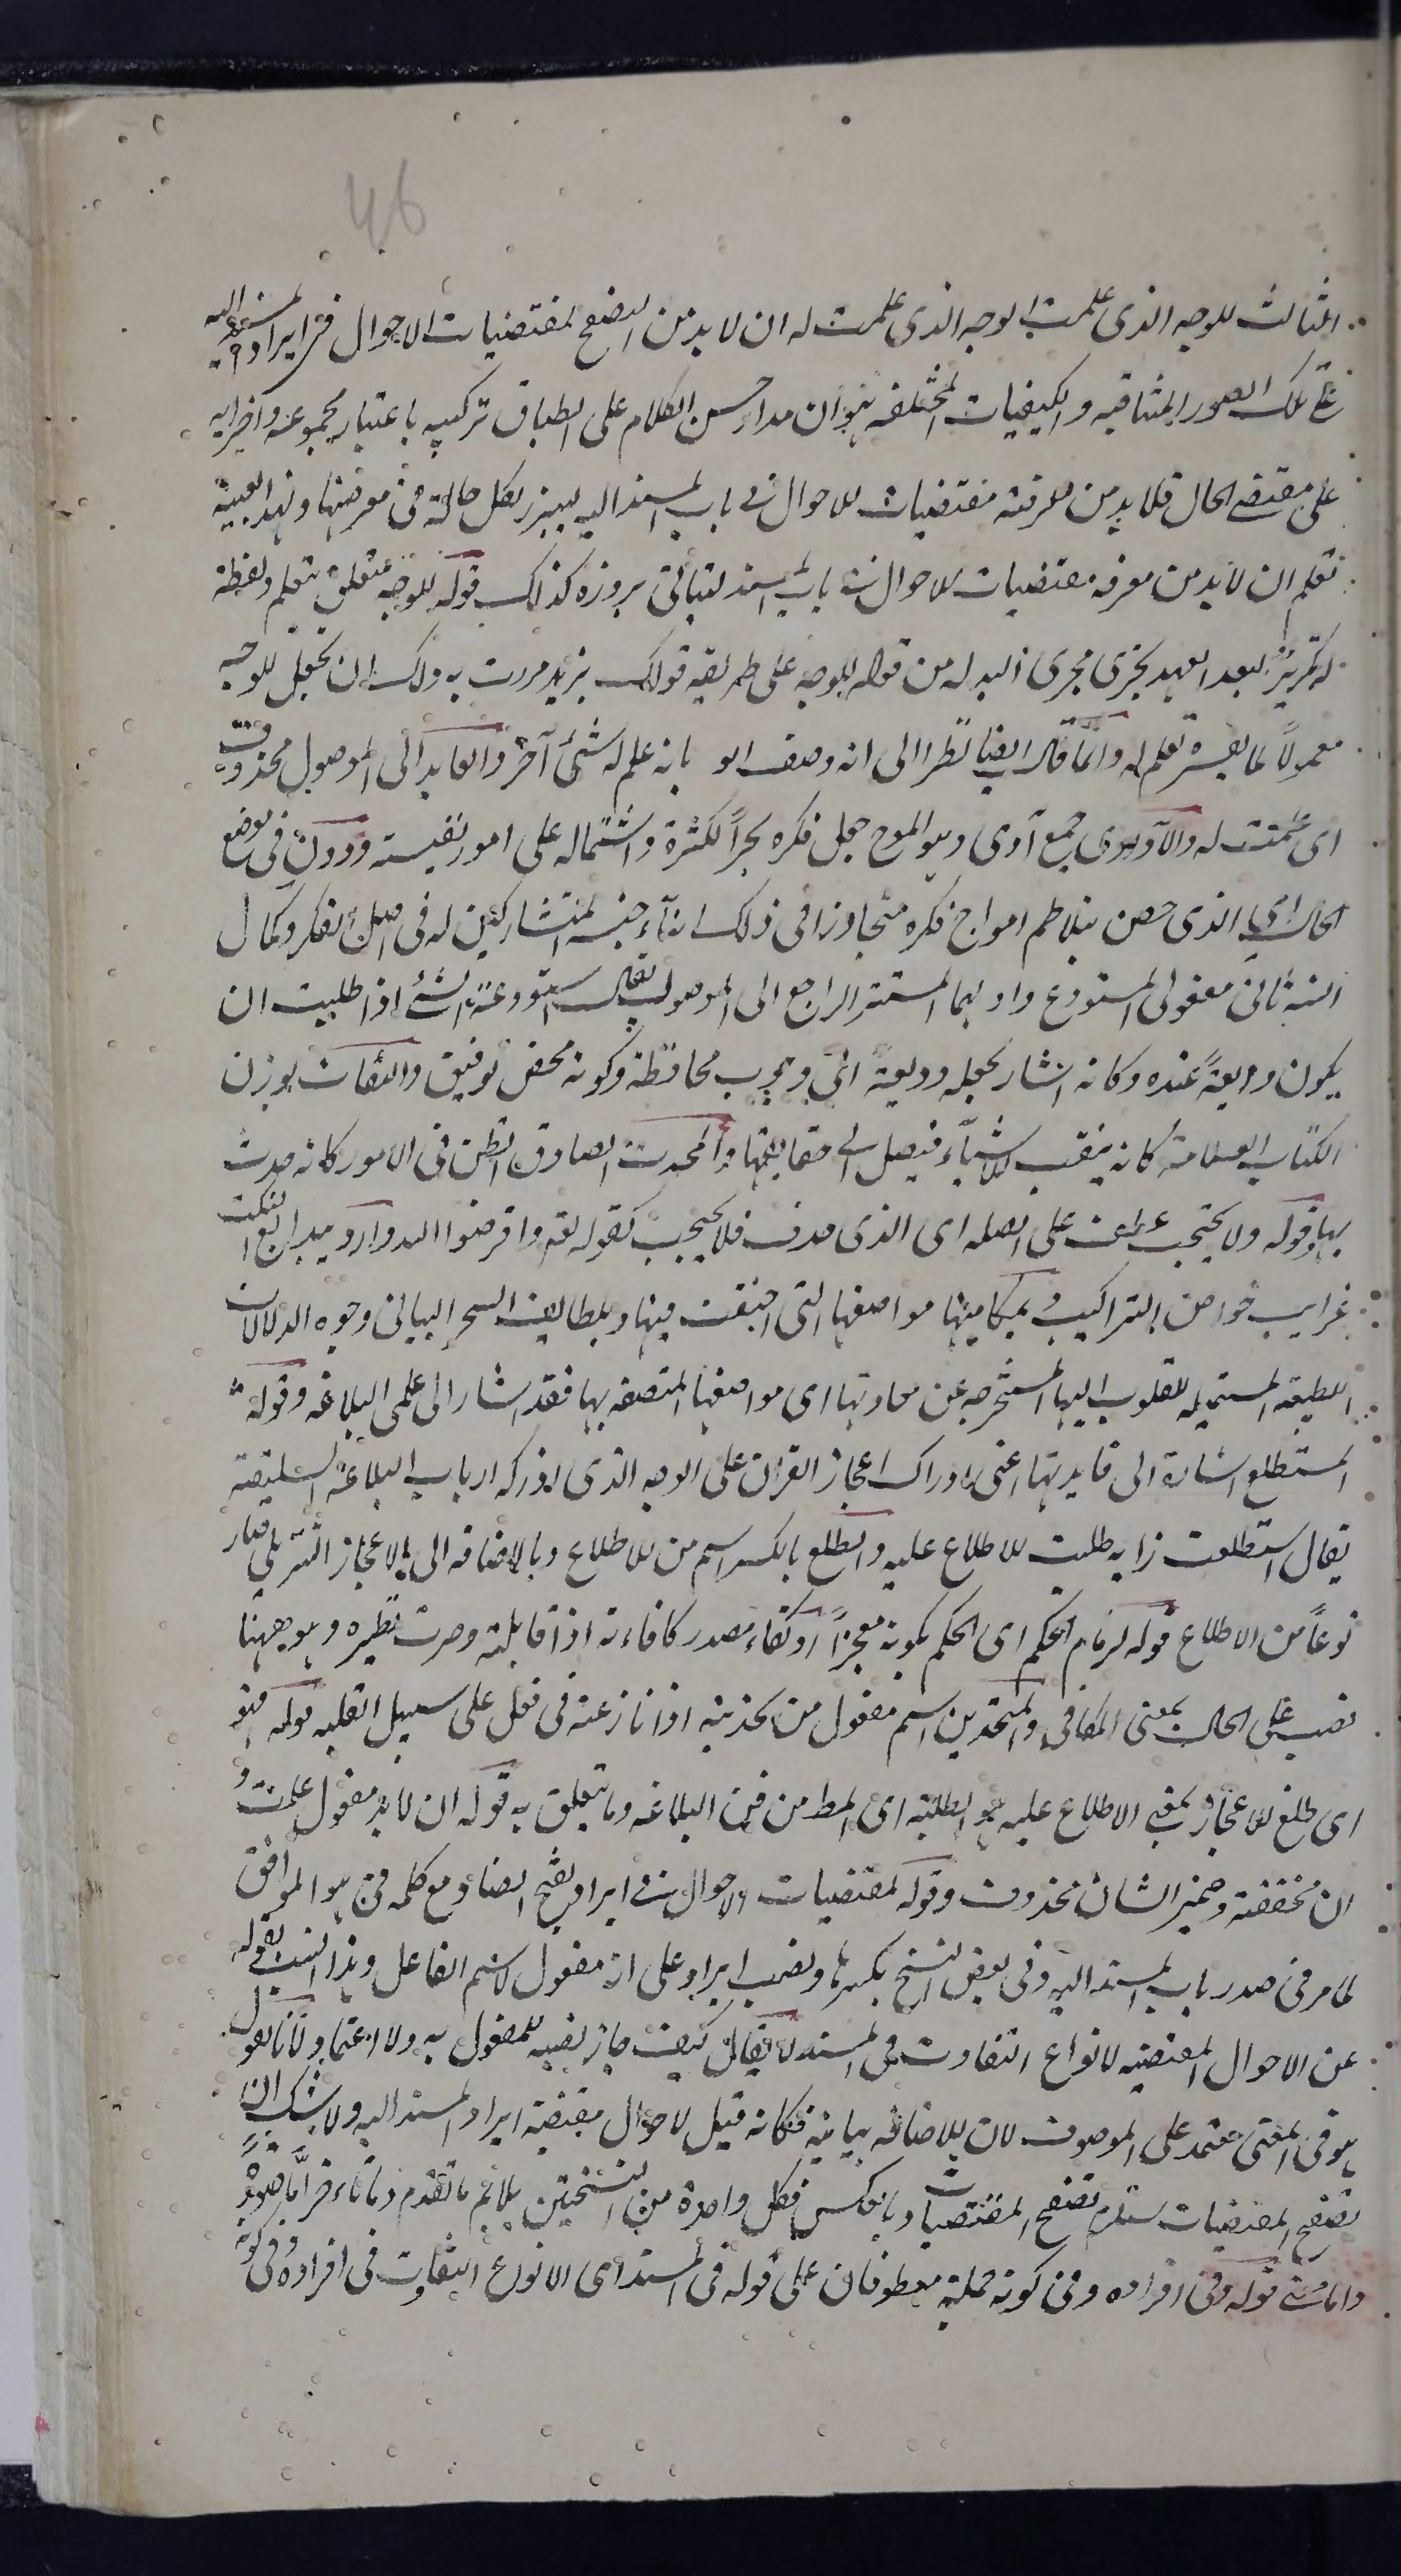 46
الثالث للوجه الذى علمت الوجه الذى علمت له ان لا بد من التصفح لمقتضيات الاحوال فى ايراد المسند اليه
على تلك الصور المتنافيه والكيفيات المختلفه هو ان مدار حسن الكلام على انطباق تركيبه باعتبار مجموعه واجزائه
على مقتضى الحال فلا بد من معرفة مقتضيات الاحوال فى باب المسند اليه ليبرز بكل حالة فى معرضها وبهذا بعينه
تعلم ان لا بد من معرفه مقتضيات الاحوال فى باب المسند ليتأتى بروزه كذلك قوله للوجه متعلق بتعلم ولفظة
له تكرير لبعد العهد يجرى مجرى البدله من قوله للوجه على طريقه قولك بزيد مررت به ولك ان تجعل للوجه
معمولاً لما يفسره تعلم له وانما قال ايضا نظرا الى انه وصف او بانه علم له شئ آخر والعايد الى الموصول محذوف
اى علمت له والآوادى جمع آدى وهو الموج جعل فكره بحراً لكثرة واشتماله على امور نفيسه ودون فى موضع
الحال اى الذى خص بتلاطم امواج فكره متجاوزا فى ذلك ابناء جنسه المتشاركين له فى اصل الفكر وكمال
انسه ثانى مفعولى المستودع واولهما المستتر الراجع الى الموصول يقال استودعته الشئ اذا طلبت ان
يكون وديعةً عنده وكانه اشار بجعله وديعة الى وجوب محافظة وكونه محض توفيق والنقاب بوزن
الكتاب العلامة كانه ينقب الاشياء فيصل الى حقايقها والمحدث الصادق الظن فى الامور كانه حدث
بها وقوله ولا يحتجب عطف على الصله اى الذى صدف فلا يحجب كقوله تعه واقرضوا الله وارد ببدايع النكت
غرايب خواص التراكيب وبمكامنها مواضعها التى اختفت فيها وبلطايف السحر البيانى وجوه الدلالات
اللطيفه المستميله للقلوب اليها المستخرجه عن معادنها اى مواضعها المتصفه بها فقد اشار الى علمى البلاغه وقوله
المستطلع اشارة الى فايدتها اعنى ادراك اعجاز القران على الوجه الذى ادركه ارباب البلاغه السليقيه
يقال استطلعت رايه طلبت الاطلاع عليه والطلع بالكسر اسم من الاطلاع وبالاضافه الى الاعجاز التنزيلى صار
نوعاً من الاطلاع قوله لزمام الحكم اى الحكم بكونه معجزاً وكفاء مصدر كافاءته اذا قابلته وصرت نظيره وهو ههنا
نصب على الحال بمعنى المكافى والمتحدين اسم مفعول من تحديته اذا نازعته فى فعل على سبيل الغلبه قوله فهو
اى طلع الاعجاز بمعنى الاطلاع عليه هو الطلبه اى المط من فن البلاغه وما يتعلق به قوله ان لا بد مفعول علمت و
ان مخففة وضمير الشان محذوف وقوله لمقتضيات الاحوال فى ايراد بفتح الضاد مع كلمه فى هو الموافق
لما مر فى صدر باب المسند اليه وفى بعض النسخ بكسرها ونصب ايراد على انه مفعول لاسم الفاعل وهذا انسب بقوله
عن الاحوال المقتضيه لانواع التفاوت فى المسند لا يقال كيف جاز نصبه للمفعول به ولا اعتماد لانا نقول
هو فى المعنى معتمد على الموصوف لان الاضافه بيانيه فكانه قيل لاحوال مقتضية ايراد المسند اليه ولا شك ان
تصفح المقتضيات يستلزم تصفح المقتضيات وبالعكس فكل واحدة من النسختين يلايم ما تقدم وما تاخر
واما فى قوله وفى افراده وفى كونه جملة معطوفان على قوله فى المسند اى الانواع التفاوت فى افراده وفى كونه